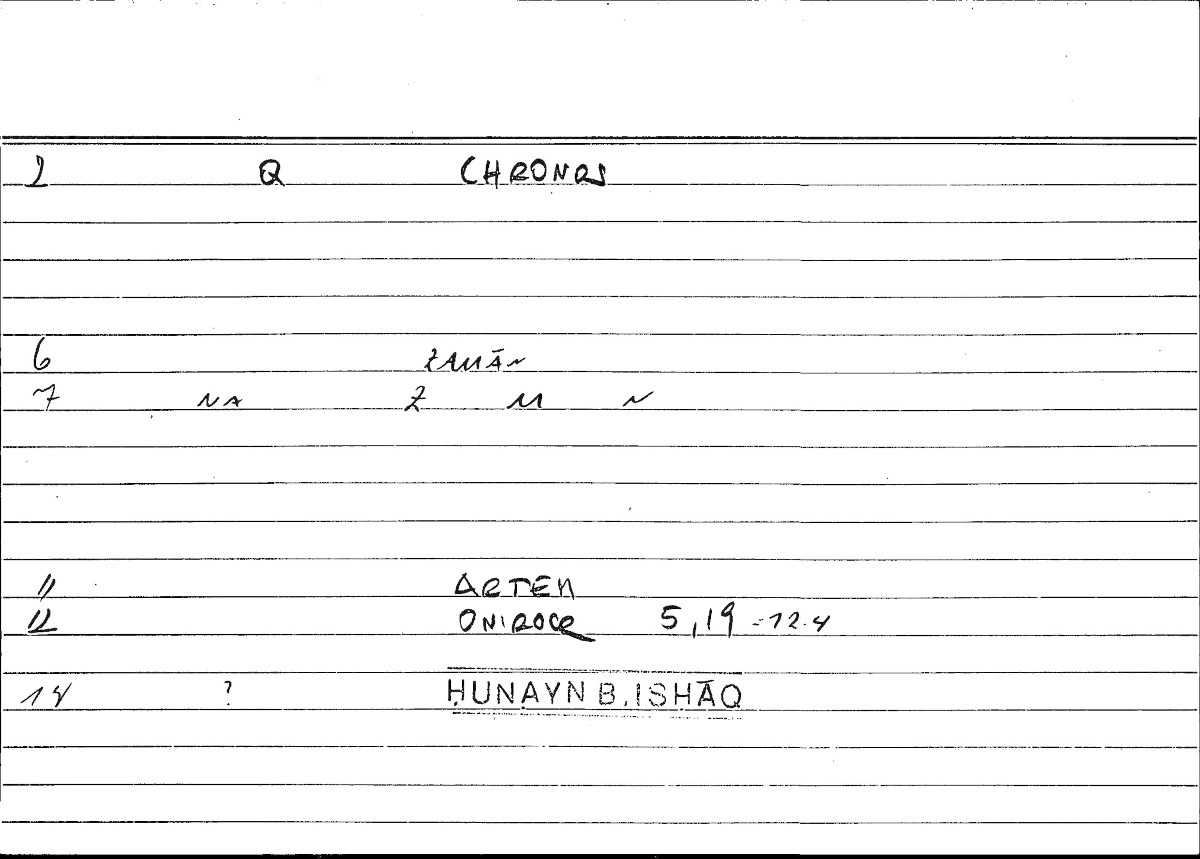 2 Q CHRONOS
6 ZAMĀN
7 NA Z M N
11 ARTEM
12 ONIROCR 5,19 - 12.4
14 ? ḤUNAYN B. ISḤĀQ